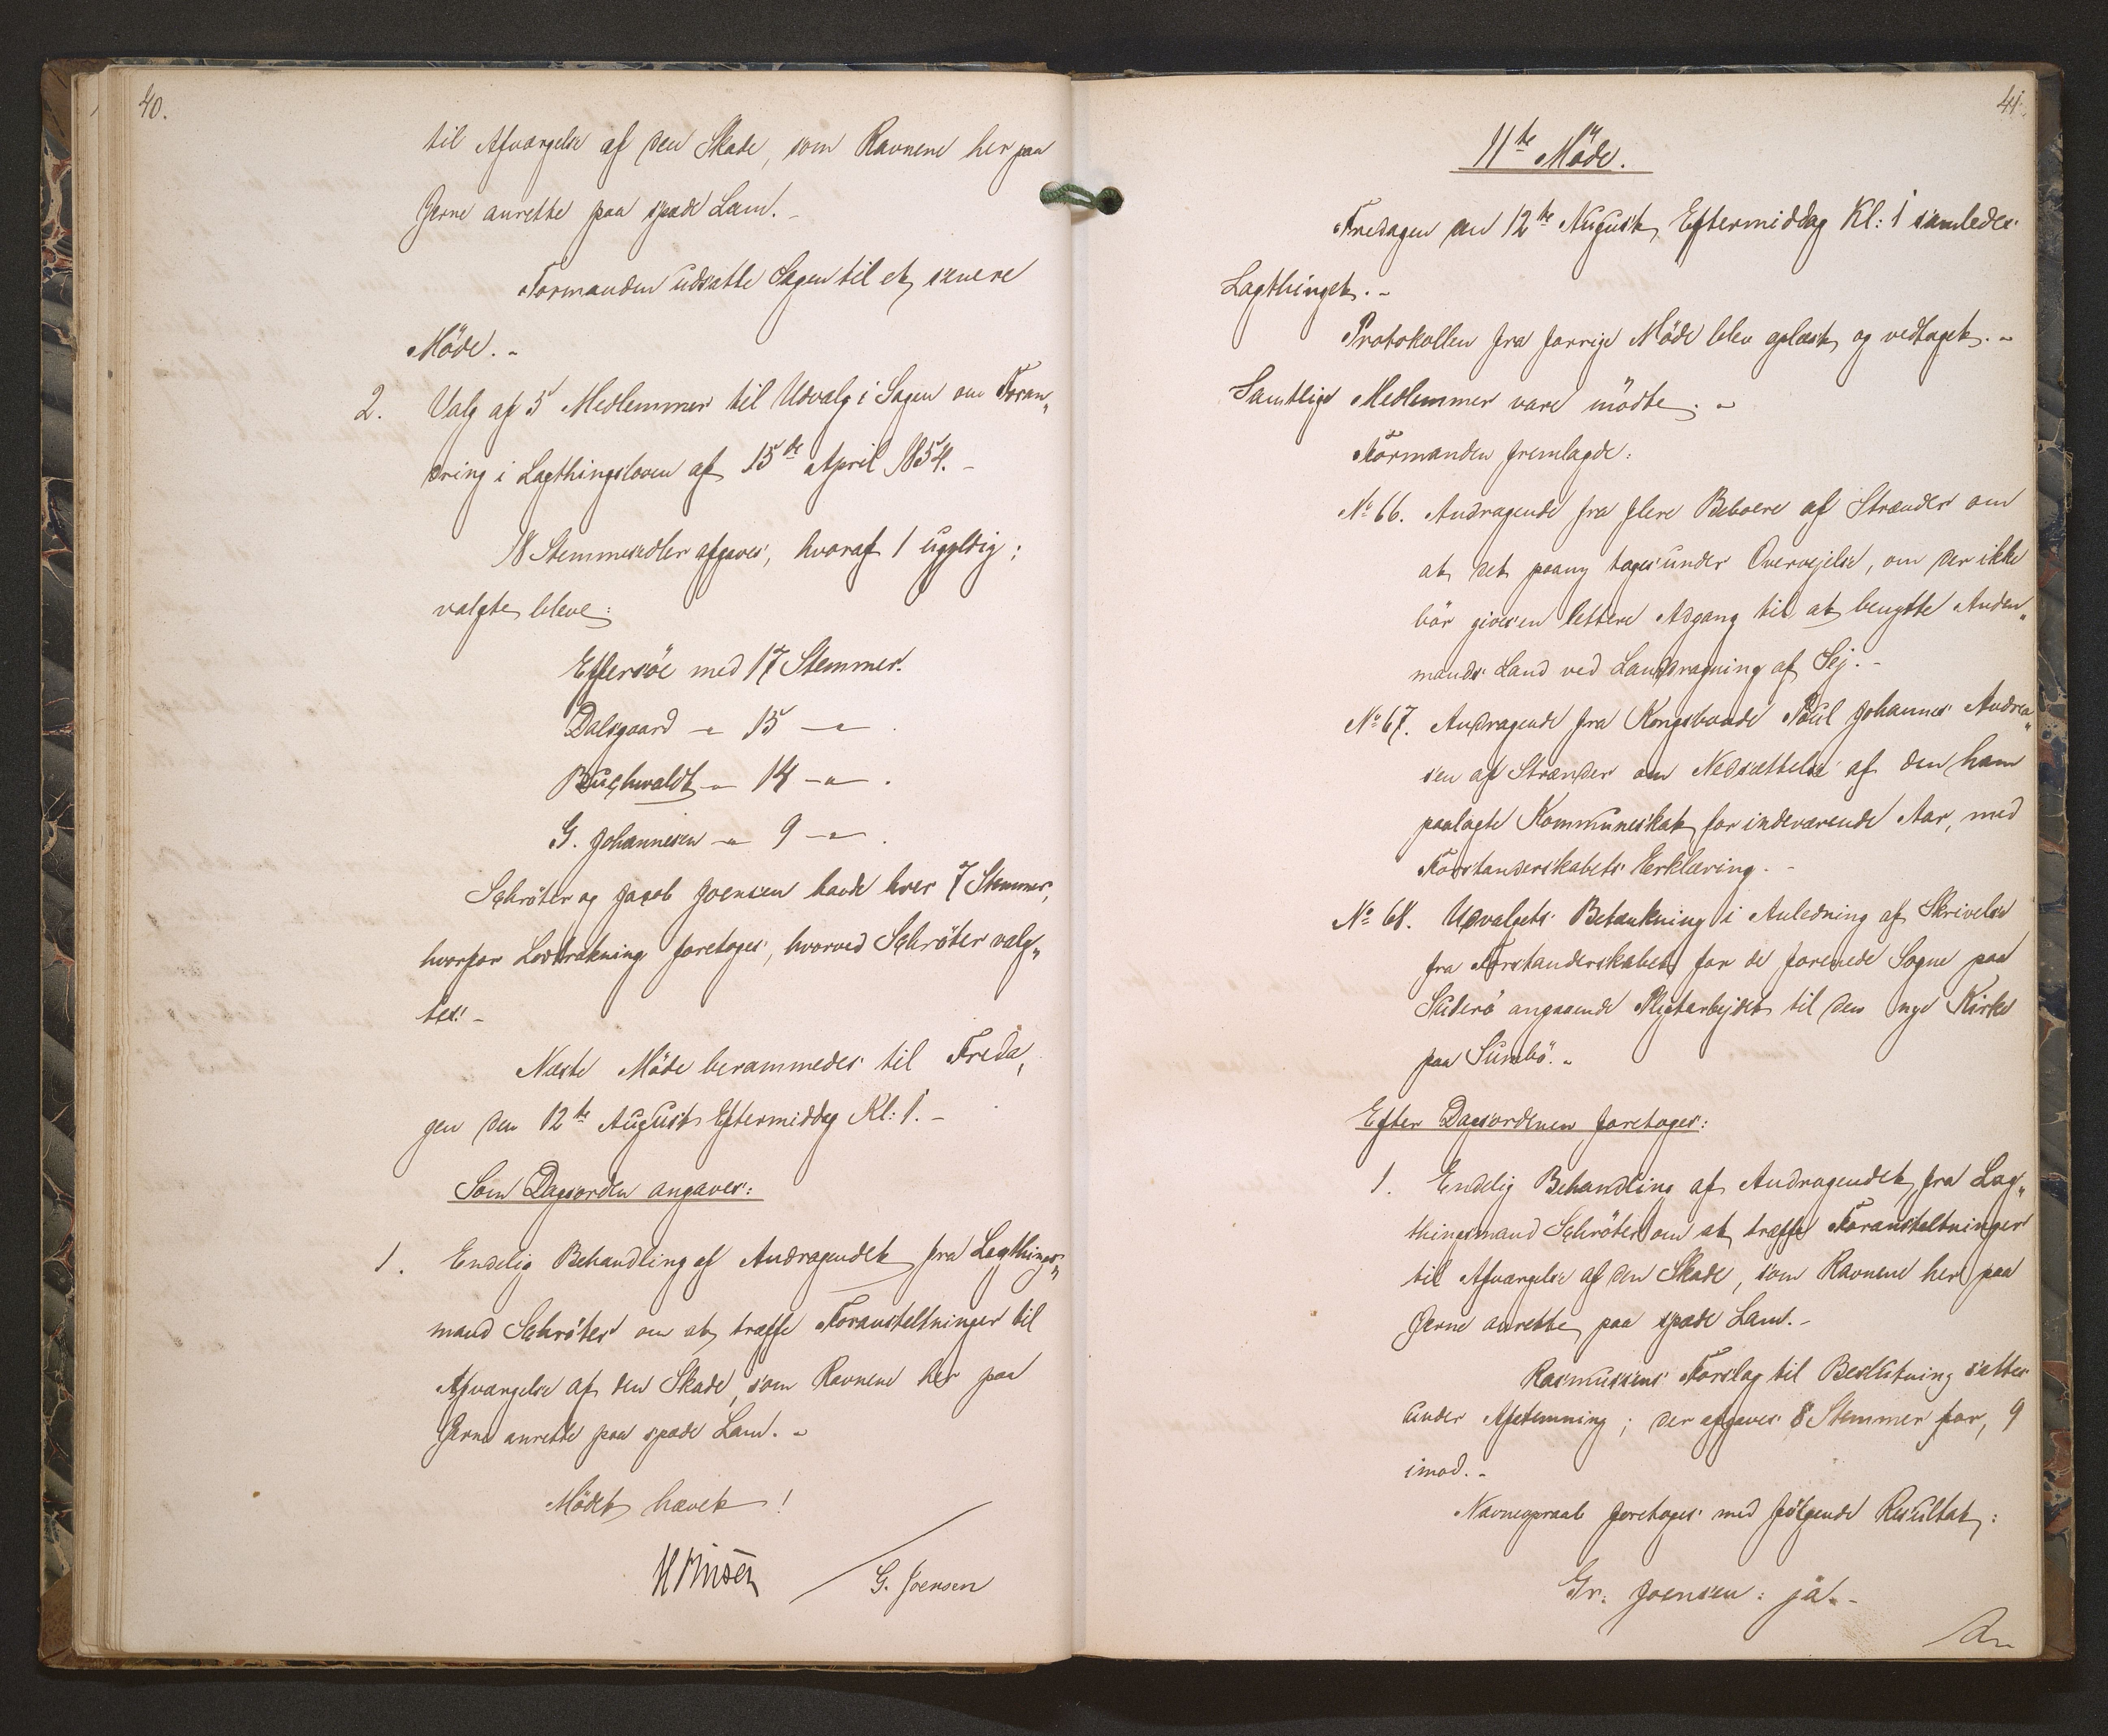 40.
til Afværgelse af den Skade, som Ravnene her paa
Øerne anrette paa spæde Lam. -
Formanden udsatte Sagen til et senere
Møde. -
2. Valg af 5 Medlemmer til Udvalg i Sagen om Foran„
dring i Lagthingsloven af 15de April 1854. -
18 Stemmesedler afgaves, hvoraf 1 ugyldig;
valgte bleve:
Effersöe med 17 Stemmer.
Dalsgaard - " - 15 - " - .
Buchwaldt - " - 14 - " - .
G. Johannesen - " - 9 - " - .
Schröter og Jacob Joensen havde hver 7 Stemmer,
hvorfor Lodtrækning foretoges, hvorved Schröter valg„
tes. -
Næste Möde berammedes til Freda„
gen den 12te August Eftermiddag Kl: 1. -
Som Dagsorden angaves:
1. Endelig Behandling af Andragendet fra Lagthings„
mand Schröter om at træffe Foranstaltninger til
Afværgelse af den Skade, som Ravnene her paa
Øerne anrette paa spæde Lam. -
Mödet hævet!
G. Joensen
41.
11te Möde.
Fredagen den 12te August, Eftermiddag Kl: 1 samledes
Lagthinget. -
Protokollen fra forrige Möde blev oplæst og vedtaget. -
Samtlige Medlemmer vare mödte. -
Formanden fremlagde:
No 66. Andragende fra flere Beboere af Strænder om
at det paany tages under Overvejelse, om der ikke
bör gives en lettere Adgang til at benytte Anden„
mands Land ved Landdragning af Sej. -
No 67. Andragende fra Kongsbonde Poul Johannes Andrea„
sen af Strænder om Nedsættelse af den ham
paalagte Kommuneskat for indeværende Aar, med
Forstanderskabets Erklæring. -
No 68. Udvalgets Betænkning i Anledning af Skrivelse
fra Forstanderskabet for de forenede Sogne paa
Suderö angaaende Pligtarbejdet til den nye Kirke
paa Sumbö. -
Efter Dagsordenen foretoges:
1. Endelig Behandling af Andragendet fra Lag„
thingsmand Schröter om at træffe Foranstaltninger
til Afværgelse af den Skade, som Ravnene her paa
Øerne anrette paa spæde Lam. -
Rasmussens Forslag til Beslutning sattes
under Afstemning; der afgaves 8 Stemmer for, 9
imod. -
Navneopraab foretoges med fölgende Resultat:
Gr. Joensen: ja. -